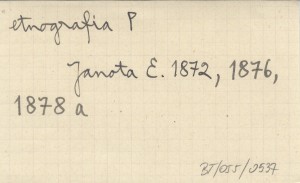 etnografia P
Janota E. 1872, 1876,
1878 a
BJ/055/2537